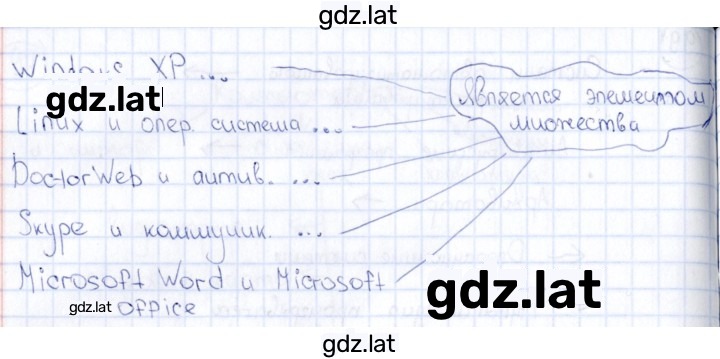 gdz.lat
Windows XP ...
является элементом
множества
gdz.lat
Linux и опер. система ...
DoctorWeb и антив. ...
Skype и коммуник. ...
Microsoft Word и Microsoft
office
gdz.lat
gdz.lat
gdz.lat